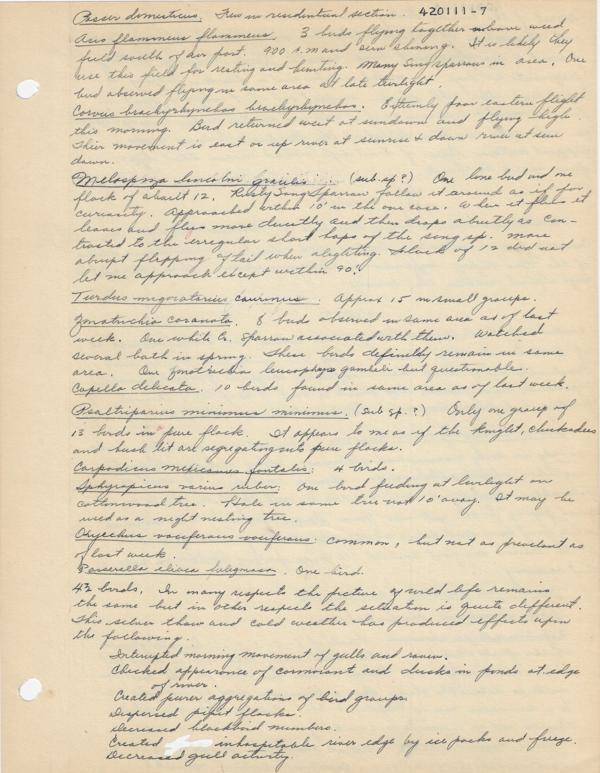 Passer domesticus. Few in residential section. 420111-7
Asio flammeus flammeus. 3 birds flying together above weed
field south of air port. 900 A.M and sun shining. It is likely they
use this field for resting and hunting. Many Song sparrows in area. One
bird observed flying in same area at late twilight.
Corvus brachyrhynchos brachyrhynchos. Extremely poor eastern flight
this morning. Bird returned west at sundown and flying high.
Their movement is east or up river at sunrise & down river at sun
down.
Melospiza lincolni gracilis (sub. sp?) One lone bird and one
flock of about 12. Rusty Song Sparrow follow it around as if for
curiosity. Approached within 10' in the one case. When it flies it
leaves and flies more directly and then drops abruptly as con-
trasted to the irregular short hops of the song sp. more
abrupt flipping of tail when alighting. Flock of 12 did not
let me approach except within 90'.
Turdus migratorius caurinus. Approx 15 in small groups.
Zonotrichia coronata. 8 birds observed in same area as of last
week. One white Cr. Sparrow associated with them. Watched
several bath in spring. These birds definitely remain in same
area. One Zonotrichia leucophrys gambeli but questionable.
Capella delicata. 10 birds found in same area as of last week.
Psaltriparus minimus minimus. (Sub sp.?) Only one group of
13 birds in pure flock. It appears to me as if the kinglet, chickadees
and bush tit are segregating into pure flocks.
Carpodicus mexicanus frontalis: 4 birds.
Sphyrapicus varius ruber: One bird feeding at twilight on
cottonwood tree. Hole in same tree not 10' away. It may be
used as a night nesting tree.
Oxyechus vociferous vociferous: common, but not as prevelant as
of last week.
Passerella iliaca fuliginosa. One bird.
42 birds. In many respects the picture of wild life remains
the same but in other respects the situation is quite different.
This silver thaw and cold weather has produced effects upon
the following.
Interrupted morning movement of gulls and raven.
Checked appearance of cormorant and ducks in ponds at edge
of river.
Created purer aggregations of bird groups
Dispersed pipit flocks.
Decreased blackbird numbers.
Created inhospitable river edge by ice packs and freeze.
Decreased gull activity.